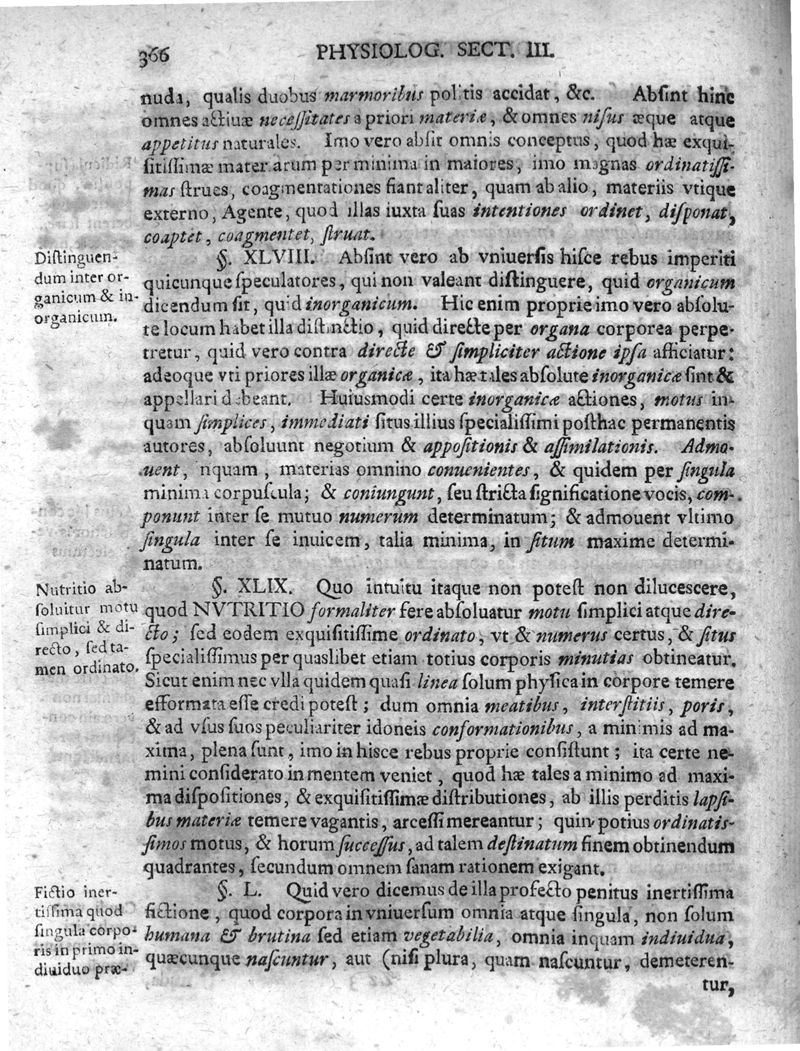 366 PHYSIOLOG. SECT. III.
nuda, qualis duobus marmoribus politis accidat, &c. Absint hinc
omnes actiuæ necessitates a priori materiæ, & omnes nisus æque atque
appetitus naturales. Imo vero absit omnis conceptus, quod hæ exqui-
sitissimæ mater arum per minima in maiores, imo magnas ordinatissi-
mas strues, coagmentationes fiant aliter, quam ab alio, materiis vtique
externo, Agente, quod illas iuxta suas intentiones ordinet, disponat,
coaptet, coagmentet, struat.
Distinguen-
dum inter or-
ganicum & in-
organicum.
§. XLVIII. Absint vero ab vniuersis hisce rebus imperiti
quicunque speculatores, qui non valeant distinguere, quid organicum
dicendum sit, quid inorganicum. Hic enim proprie imo vero absolu-
te locum habet illa distinctio, quid directe per organa corporea perpe-
tretur, quid vero contra directe & simpliciter actione ipsa afficiatur:
adeoque vti priores illæ organicæ, ita hæ tales absolute inorganicæ sint &
appellari debeant. Huiusmodi certe inorganicæ actiones, motus in-
quam simplices, immediati situs illius specialissimi posthac permanentis
autores, absoluunt negotium & appositionis & assimilationis. Admo-
uent, nquam, materias omnino conuenientes, & quidem per singula
minima corpuscula; & coniungunt, seu stricta significatione vocis, com-
ponunt inter se mutuo numerum determinatum; & admouent vltimo
singula inter se inuicem, talia minima, in situm maxime determi-
natum.
Nutritio ab-
soluitur motu
simplici & di-
recto, sed ta-
men ordinato.
§. XLIX. Quo intuitu itaque non potest non dilucescere,
quod NVTRITIO formaliter fere absoluatur motu simplici atque dire-
cto; sed eodem exquisitissime ordinato, vt & numerus certus, & situs
specialissimus per quaslibet etiam totius corporis minutias obtineatur.
Sicut enim nec vlla quidem quasi linea solum physica in corpore temere
efformata esse credi potest; dum omnia meatibus, interstitiis, poris,
& ad vsus suos peculiariter idoneis conformationibus, a minimis ad ma-
xima, plena sunt, imo in hisce rebus proprie consistunt; ita certe ne-
mini considerato in mentem veniet, quod hæ tales a minimo ad maxi-
ma dispositiones, & exquisitissimæ distributiones, ab illis perditis lapsi-
bus materiæ temere vagantis, arcessi mereantur; quin potius ordinatis-
simos motus, & horum successus, ad talem destinatum finem obtinendum
quadrantes, secundum omnem sanam rationem exigant.
Fictio iner-
tissima quod
singula corpo-
ris in primo in-
diuiduo præ-
§. L. Quid vero dicemus de illa profecto penitus inertissima
fictione, quod corpora in vniuersum omnia atque singula, non solum
humana & brutina sed etiam vegetabilia, omnia inquam indiuidua,
quæcunque nascuntur, aut (nisi plura, quam nascuntur, demeteren-
tur,